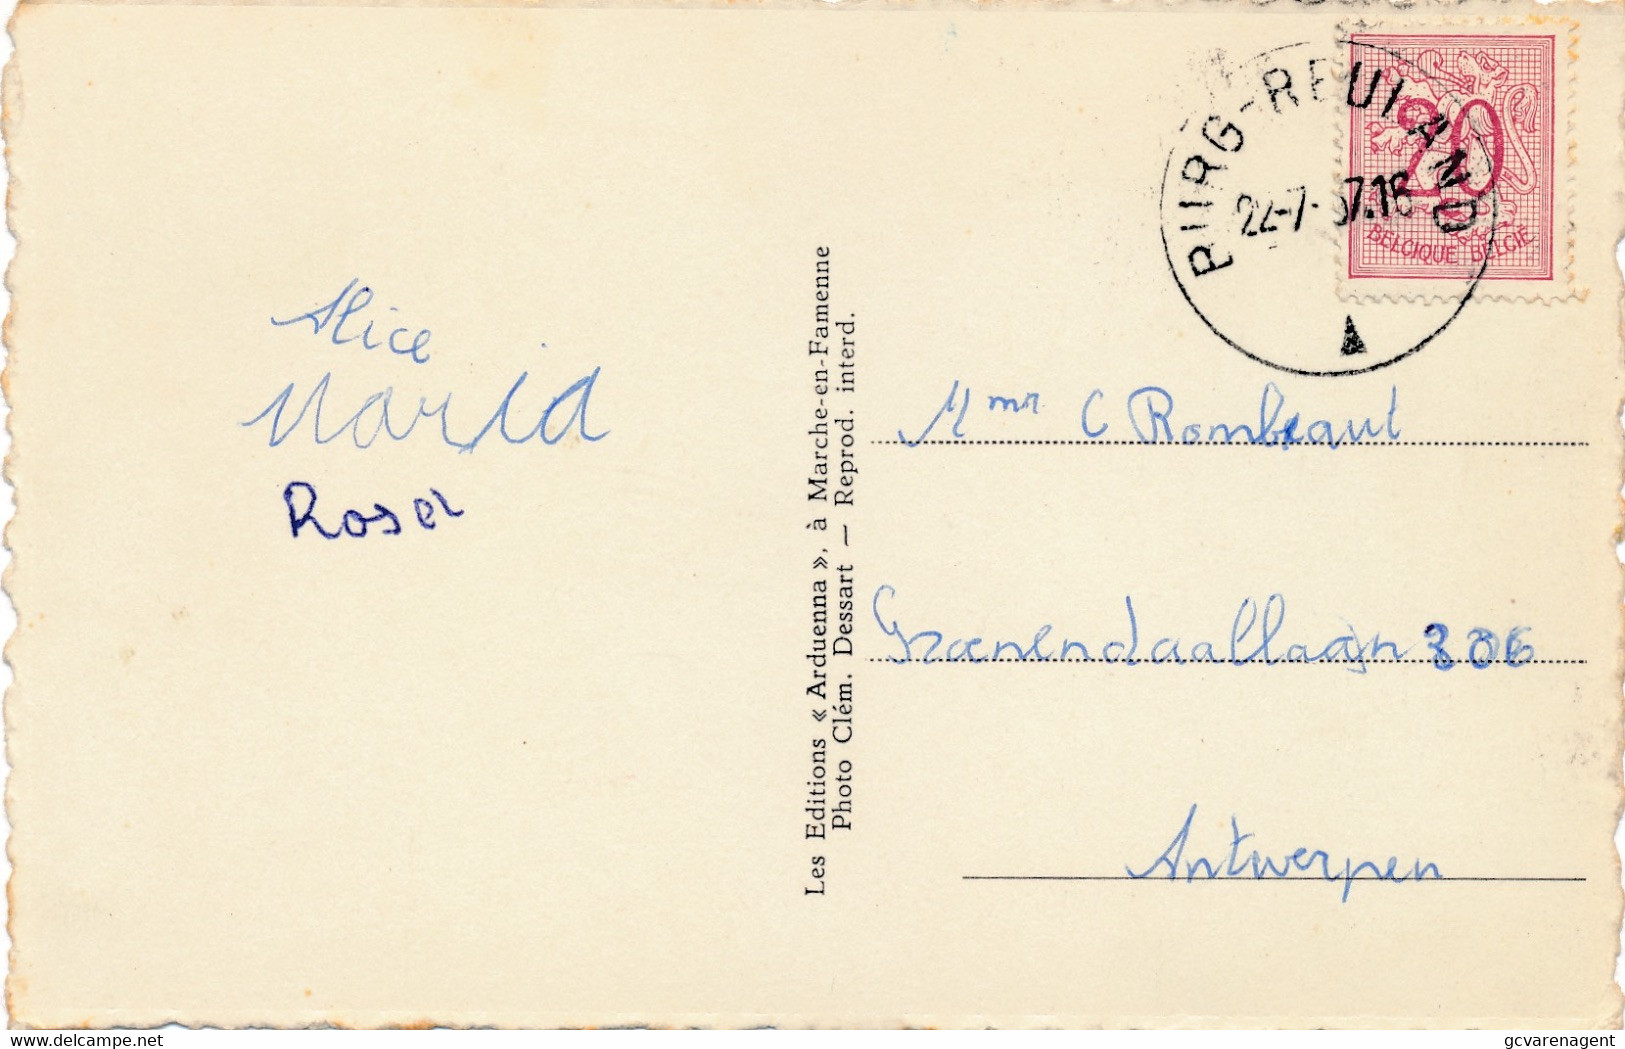 BURG-REULAND
22-7- 57.16
20
BELGIQUE BELGIË
Alice
Maria
Roser
Les Editions « Arduenna », à Marche-en-Famenne
Photo Clém. Dessart — Reprod. interd.
Mmr C Rombaut
Groenendaallaan 306
Antwerpen
delcampe.net
gcvarenagent